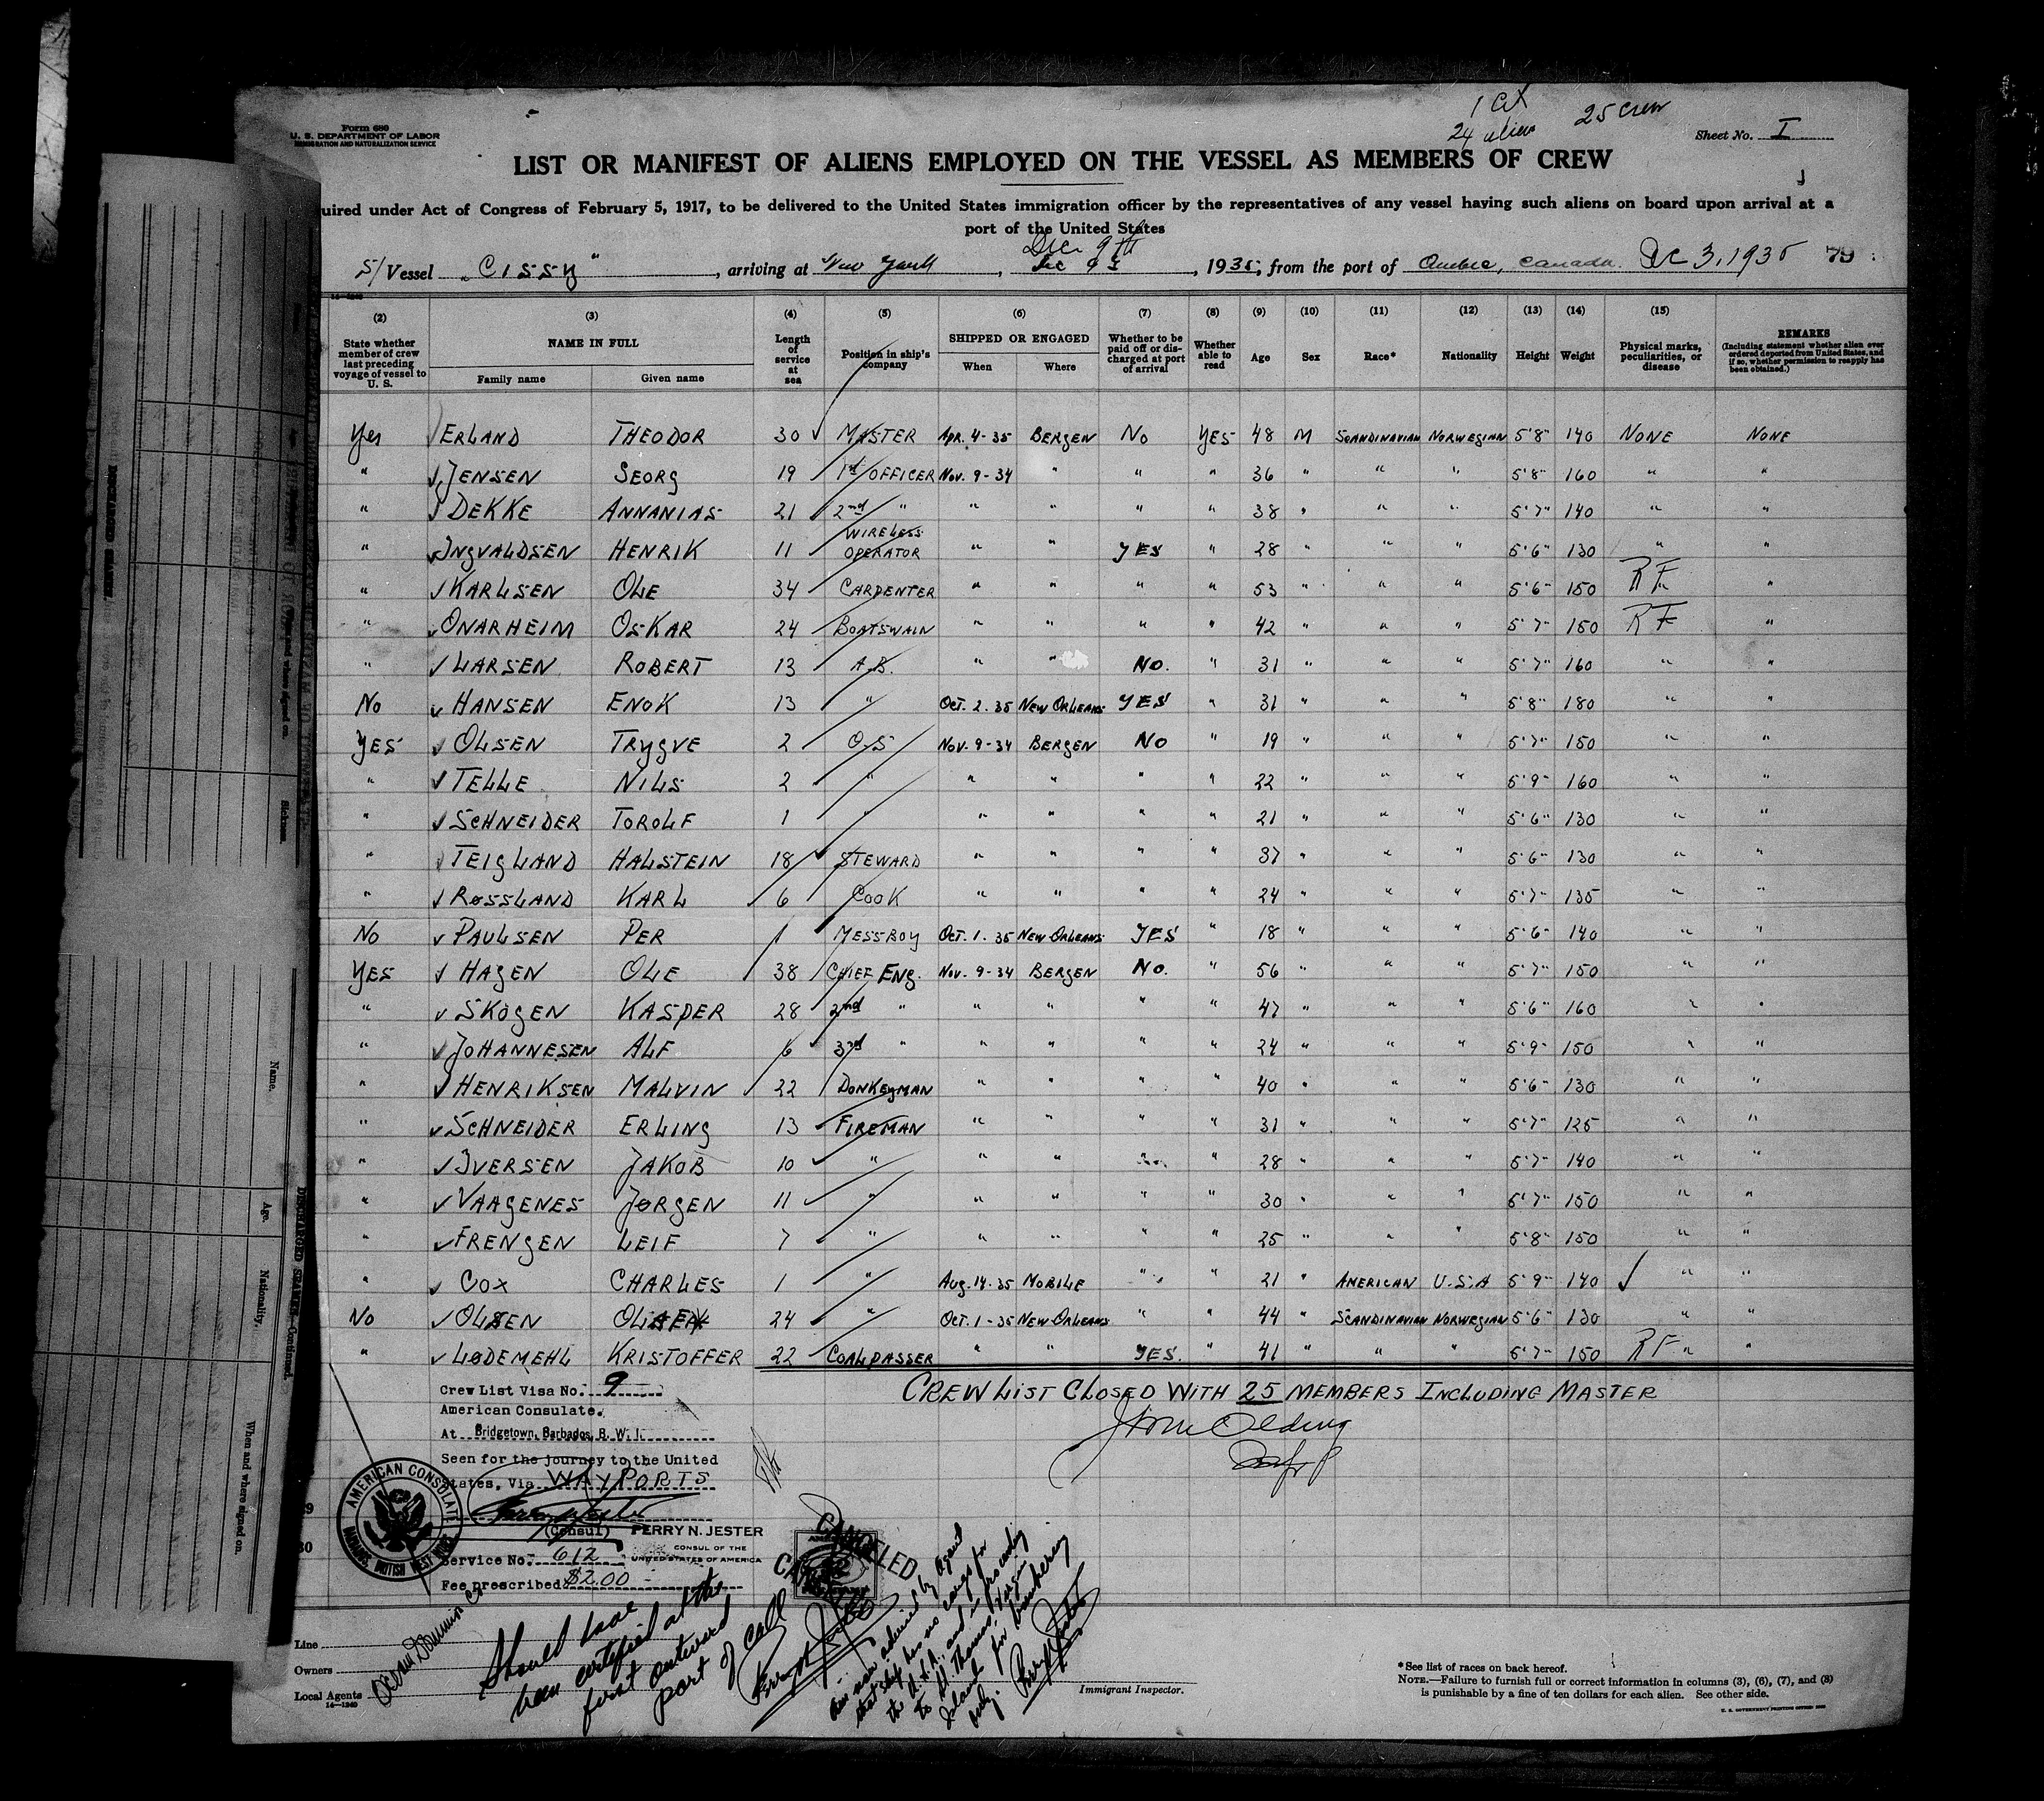 Form 680
U. S. DEPARTMENT OF LABOR
IMMIGRATION AND NATURALIZATION SERVICE
1 Cit
24 aliens
25 crew
Sheet No. I
LIST OR MANIFEST OF ALIENS EMPLOYED ON THE VESSEL AS MEMBERS OF CREW
uired under Act of Congress of February 5, 1917, to be delivered to the United States immigration officer by the representatives of any vessel having such aliens on board upon arrival at a
port of the United States
Dec 9th
S/Vessel "Cissy", arriving at New York, 1935, from the port of Quebec, Canada. Dec 3, 1935 79
(2) (3) (4) (5) (6) (7) (8) (9) (10) (11) (12) (13) (14) (15)
State whether member of crew last preceding voyage of vessel to U. S. NAME IN FULL Family name Given name Length of service at sea Position in ship's company SHIPPED OR ENGAGED When Where Whether to be paid off or discharged at port of arrival Whether able to read Age Sex Race* Nationality Height Weight Physical marks, peculiarities, or disease REMARKS (Including statement whether alien ever ordered deported from United States, and if so, whether permission to reapply has been obtained.)
Yes ERLAND THEODOR 30 MASTER Apr. 4-35 BERGEN No YES 48 M SCANDINAVIAN NORWEGIAN 5'8" 140 NONE NONE
" JENSEN SEORG 19 1st OFFICER Nov. 9-34 " " " 36 " " " 5'8" 160 " "
" DEKKE ANNANIAS 21 2nd " " " " " 38 " " " 5'7" 140 " "
" INGVALDSEN HENRIK 11 WIRELESS OPERATOR " " YES " 28 " " " 5'6" 130 " "
" KARLSEN OLE 34 CARPENTER " " " " 53 " " " 5'6" 150 RF " "
" ONARHEIM OSKAR 24 BOATSWAIN " " " " 42 " " " 5'7" 150 RF "
" LARSEN ROBERT 13 A.B. " " No. " 31 " " " 5'7" 160 " "
No HANSEN ENOK 13 " Oct. 2. 35 NEW ORLEANS YES " 31 " " " 5'8" 180 " "
YES OLSEN TRYGVE 2 O.S Nov. 9-34 BERGEN No " 19 " " " 5'7" 150 " "
" TELLE NILS 2 " " " " " 22 " " " 5'9" 160 " "
" SCHNEIDER TOROLF 1 " " " " " 21 " " " 5'6" 130 " "
" TEIGLAND HALSTEIN 18 STEWARD " " " " 37 " " " 5'6" 130 " "
" RØSSLAND KARL 6 COOK " " " " 24 " " " 5'7" 135 " "
No PAULSEN PER 1 MESSBOY Oct. 1. 35 NEW ORLEANS YES " 18 " " " 5'6" 140 " "
YES HAGEN OLE 38 CHIEF ENG. Nov. 9-34 BERGEN No. " 56 " " " 5'7" 150 " "
" SKOGEN KASPER 28 2nd " " " " " 47 " " " 5'6" 160 " "
" JOHANNESEN ALF 6 3rd " " " " " 24 " " " 5'9" 150 " "
" HENRIKSEN MALVIN 22 DONKEYMAN " " " " 40 " " " 5'6" 130 " "
" SCHNEIDER ERLING 13 FIREMAN " " " " 31 " " " 5'7" 125 " "
" IVERSEN JAKOB 10 " " " " " 28 " " " 5'7" 140 " "
" VAAGENES JØRGEN 11 " " " " " 30 " " " 5'7" 150 " "
" FRENGEN LEIF 7 " " " " " 25 " " " 5'8" 150 " "
" COX CHARLES 1 " Aug. 14-35 MOBILE " " 21 " AMERICAN U.S.A 5'9" 140 " "
No OLSEN 24 " Oct. 1-35 NEW ORLEANS " " 44 " SCANDINAVIAN NORWEGIAN 5'6" 130 " "
" LØDEMEHL KRISTOFFER 22 COALPASSER " " YES. " 41 " " " 5'7" 150 RF " "
CREW LIST CLOSED WITH 25 MEMBERS INCLUDING MASTER
Crew List Visa No. 9
American Consulate.
At Bridgetown, Barbados, B. W. I.
Seen for the journey to the United
States, Via WAYPORTS
(Consul) PERRY N. JESTER
CONSUL OF THE
UNITED STATES OF AMERICA
Service No. 612
Fee prescribed $2.00
AMERICAN CONSULATE
BARBADOS, BRITISH WEST INDIES
CANCELED
Should have
been certified at the
first outward
port of call
Am now advised by agent
that ship has no cargo for
the U.S.A., and is proceeding
to St. Thomas, Virgin
Islands for bunkering
only.
Line
Owners
Local Agents
14—1240
Immigrant Inspector.
*See list of races on back hereof.
NOTE.—Failure to furnish full or correct information in columns (3), (6), (7), and (8)
is punishable by a fine of ten dollars for each alien. See other side.
U. S. GOVERNMENT PRINTING OFFICE
DISCHARGED SEAMEN—Continued.
Name.
Age.
Nationality.
When and where signed on.